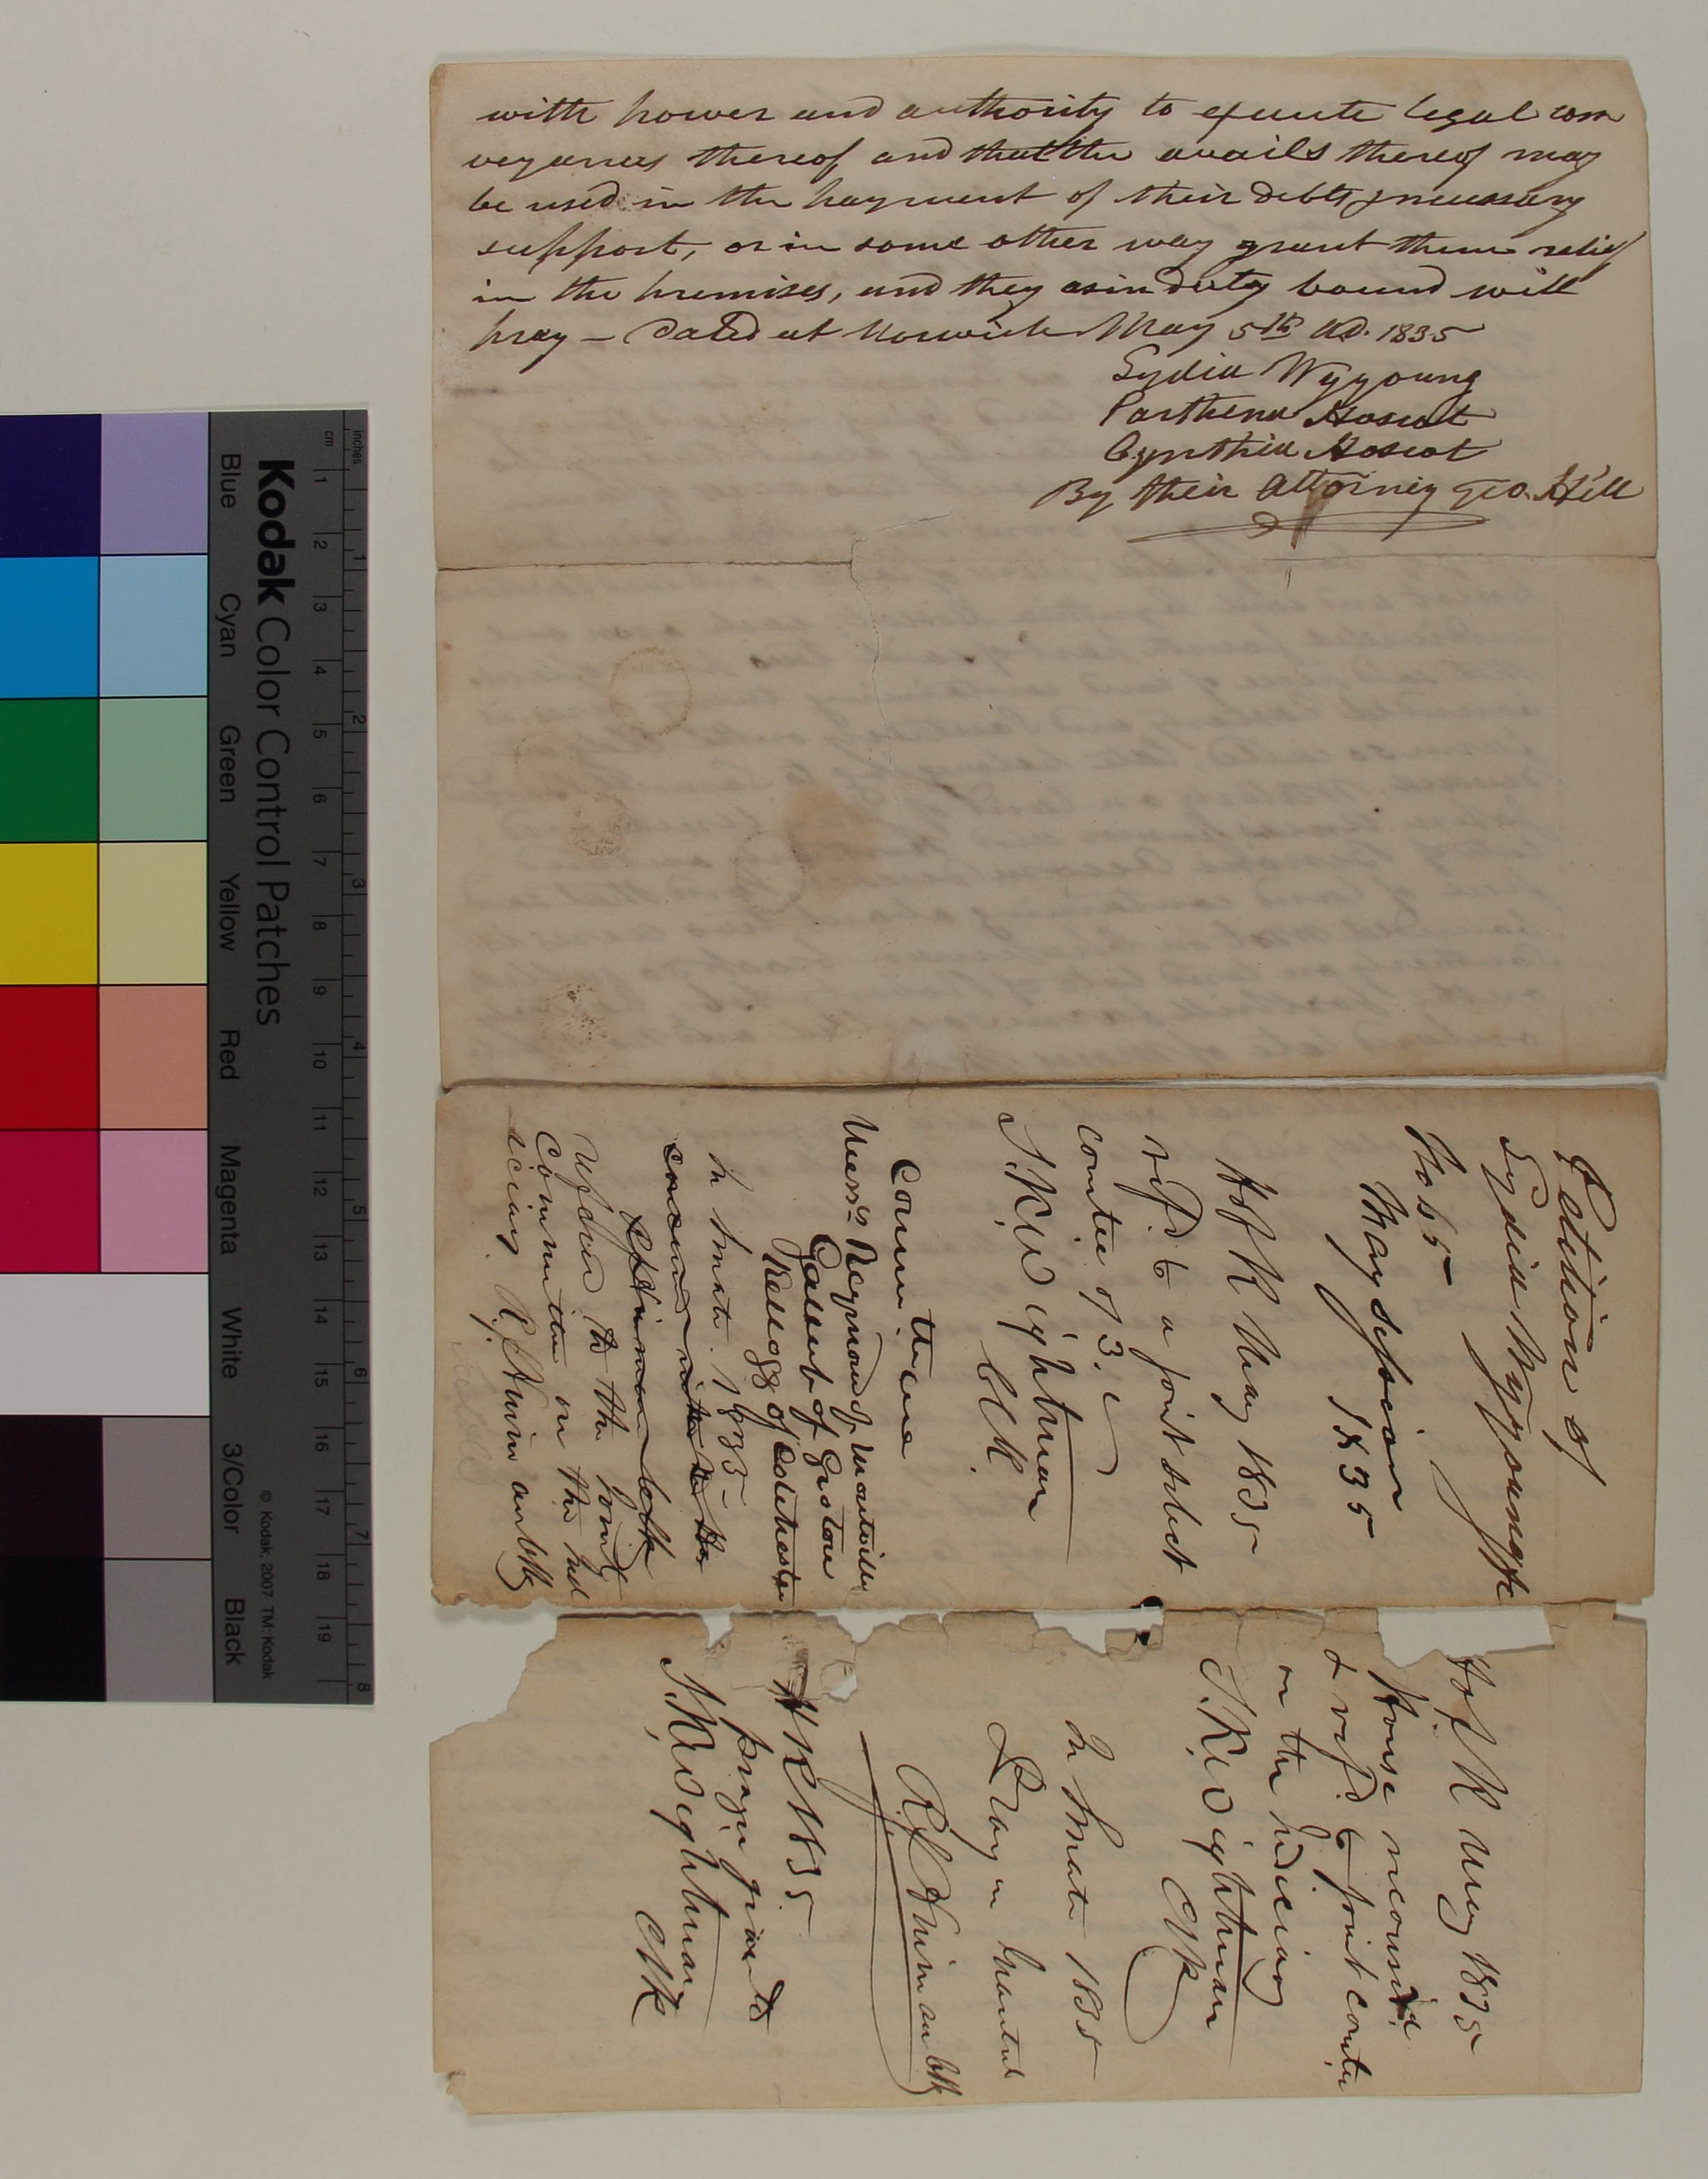 with power and authority to execute legal con
veyances thereof and that the avails thereof may
be used in the payment of their debts & necessary
support, or in some other way grant them relief
in the premises, and they as in duty bound will
pray – Dated at Norwich May 5th AD. 1835
Lydia Wyyoung
Parthena Hoscot
Cynthia Hoscot
By their Attorney Geo. Hill
Petition of
Lydia Wyyoung &c
No 55
May Session
1835
H of R May 1835
refd to a joint select
comtee of 3.
S. K. Wightman
Clk.
Committee
Messrs Raymond of Montville
Gallub of Groton
Kellogg of Colchester
In Senate. 1835
concurred
R. Hinman Clk
Referred to the joint
Committee on the Jud
iciary R. R. Hinman Clk
H of R May 1835
House reconsidd.
& refd. to joint comtee
on the judiciary
S. K. Wightman
Clk
In Senate 1835
Prayer granted
R. R. Hinman Clk
H R 1835
prayer granted
S. K. Wightman
Clk
Kodak Color Control Patches
Blue
Cyan
Green
Yellow
Red
Magenta
White
3/Color
Black
© Kodak, 2007 TM: Kodak
inches
1
2
3
4
5
6
7
8
cm
1
2
3
4
5
6
7
8
9
10
11
12
13
14
15
16
17
18
19